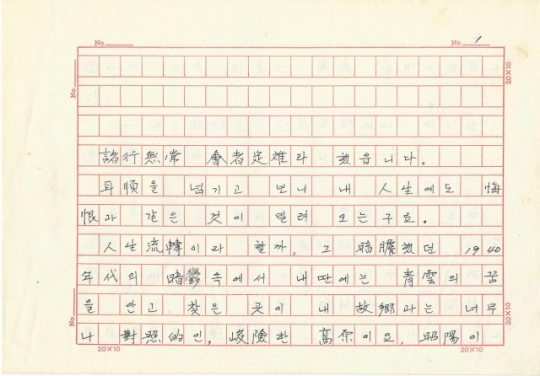 No. No. 1
諸行無常 會者定離라 했읍니다.
耳順을 넘기고 보니 내 人生에도 悔
恨과 같은 것이 밀려 오는구료.
人生流轉이라 할까, 그 暗膽했던 1940
年代의 暗鬱속에서 내딴에는 靑雲의 꿈
을 안고 찾은 곳이 내 故鄕과는 너무
나 對照的인, 峻險한 高原이요, 昭陽이
20×10 20×10
No.
No.
20×10
20×10